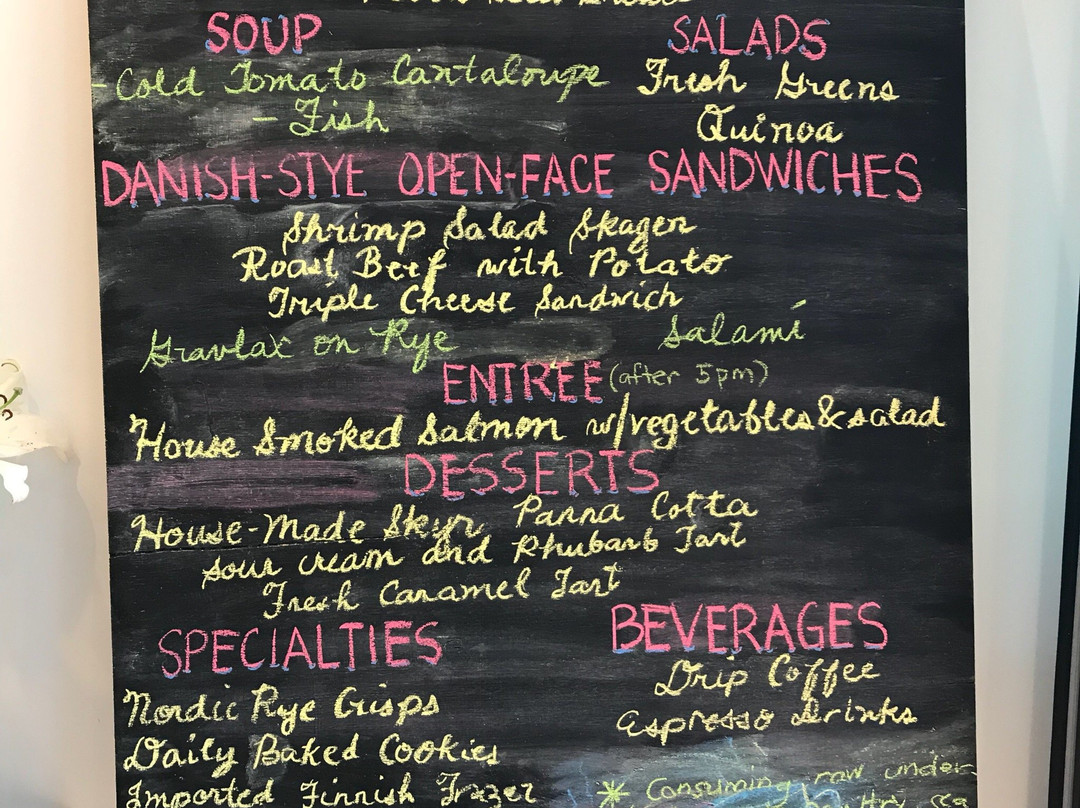 SOUP
- Cold Tomato Cantaloupe
- Fish
SALADS
Fresh Greens
Quinoa
DANISH-STYE OPEN-FACE SANDWICHES
Shrimp Salad Skagen
Roast Beef with Potato
Triple Cheese Sandwich
Gravlax on Rye
Salami
ENTREE (after 5pm)
House Smoked Salmon w/vegetables & salad
DESSERTS
House-Made Skyr Panna Cotta
sour cream and Rhubarb Tart
Fresh Caramel Tart
SPECIALTIES
Nordic Rye Crisps
Daily Baked Cookies
Imported Finnish Frazer
BEVERAGES
Drip Coffee
Espresso Drinks
* Consuming raw under